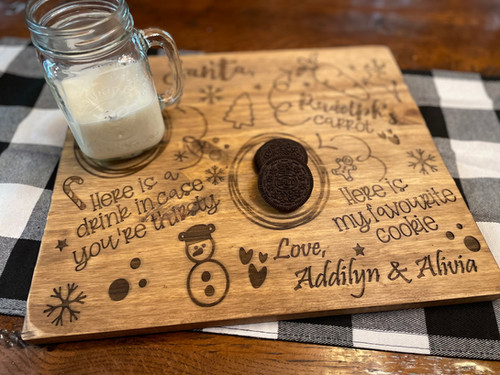 Santa,
Rudolph's
carrot
Here is a
drink in case
you're thirsty
Here is
my favourite
cookie
Love,
Addilyn & Alivia